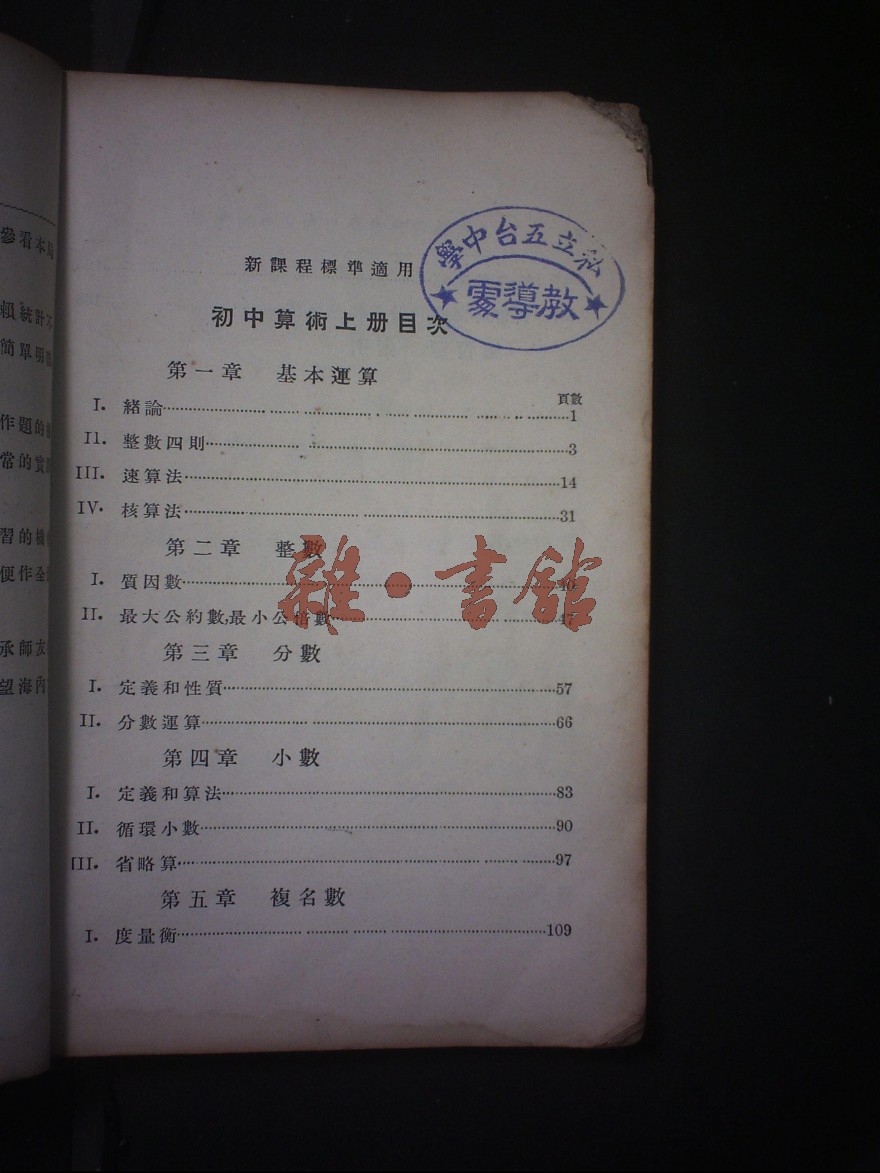 參看本局
賴統計不
簡單明
作題的
常的實
習的機
便作全
承師友
望海內
私立五台中學
教導處
新課程標準適用
初中算術上册目次
第一章 基本運算
頁數
I. 緒論 1
II. 整數四則 3
III. 速算法 14
IV. 核算法 31
第二章 整數
I. 質因數
II. 最大公約數,最小公倍數 47
第三章 分數
I. 定義和性質 57
II. 分數運算 66
第四章 小數
I. 定義和算法 83
II. 循環小數 90
III. 省略算 97
第五章 複名數
I. 度量衡 109
雜·書館